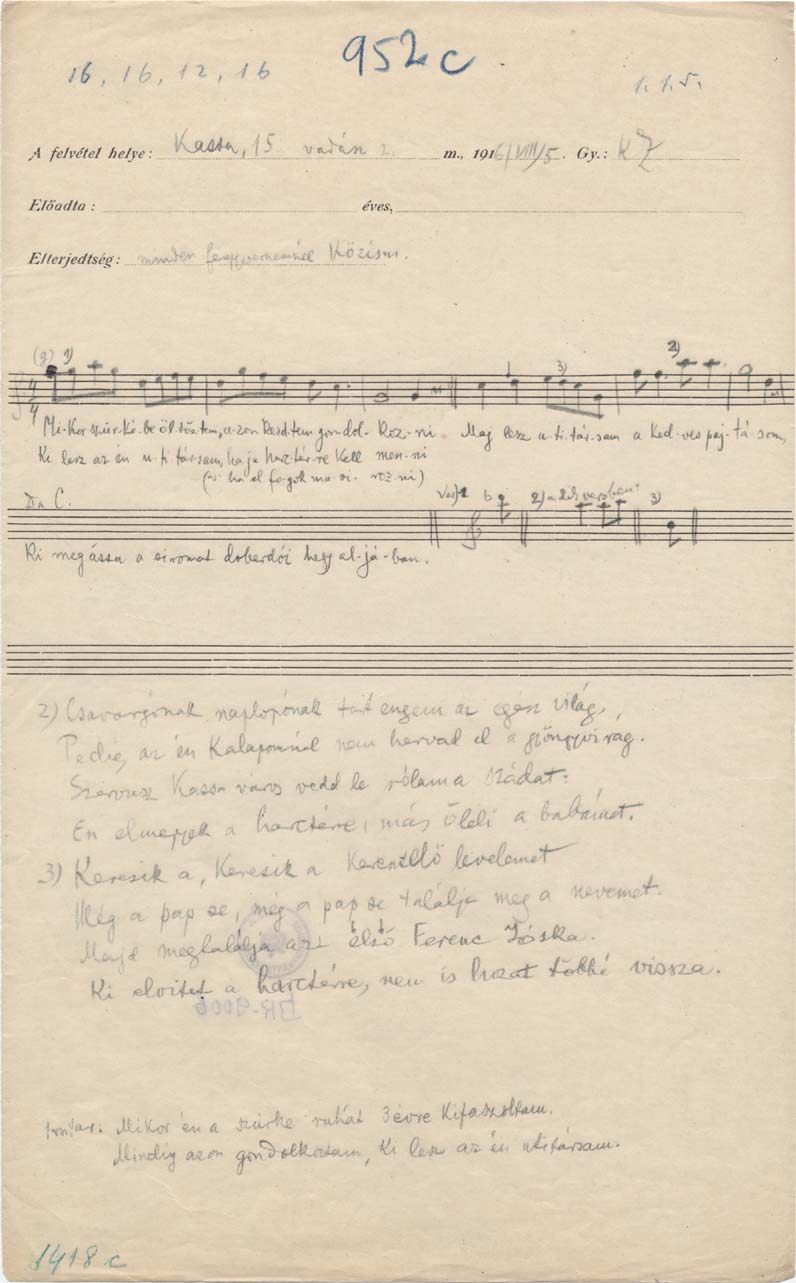 952c.
16, 16, 12, 16
1. 1. 5.
A felvétel helye: Kassa, 15. vadász z. m., 1916/VIII/5. Gy.: KZ
Előadta: éves,
Elterjedtség: minden fegyvernemnél Közism.
(g) 1) 3) 2)
Mi-kor szür-ké-be öl-töz-tem, a-zon kezd-tem gon-dol-koz-ni Maj lesz u-ti-tár-sam a ked-ves paj-tá-som,
Ki lesz az én u-ti társam, ha ja harc-tér-re kell men-ni
(v. ha el fo-gok ma-si-roz-ni)
Da C.
2) a 2ik versben: 3)
Ki megássa a siromat doberdói hegy al-já-ban.
2) Csavargónak naplopónak tart engem az egész világ,
Pedig, az én Kalapomnál nem hervad el a gyöngyvirág.
Szervusz Kassa város vedd le rólam a szádat:
Én elmegyek a harctérre, más öleli a babámat.
3) Keresik a, Keresik a Keresztlő levelemet
Még a pap se, még a pap se találja meg a nevemet.
Majd meglalálja azt első Ferenc Jóska.
Ki elvitet a harctérre, nem is hozat többé vissza.
BR-9006
Mikor én a szürke ruhát 3 évre Kifaszoltam.
Mindig azon gondolkoztam, Ki lesz az én utitársam.
1418 c